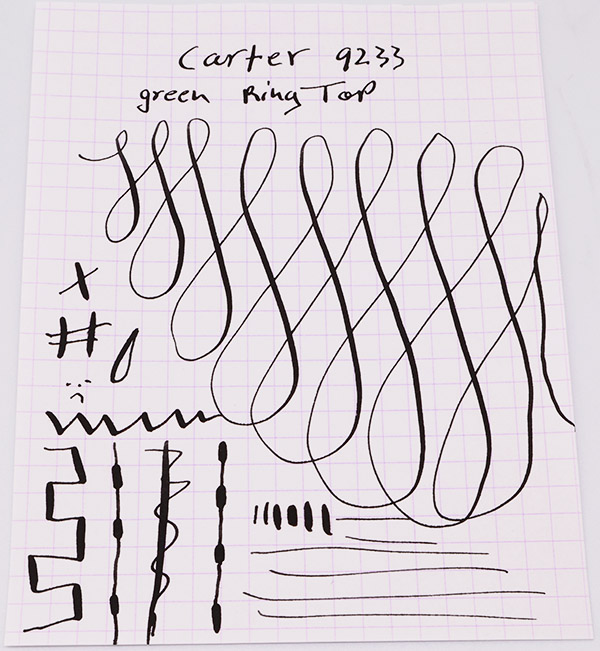 Carter 9233
green Ring Top